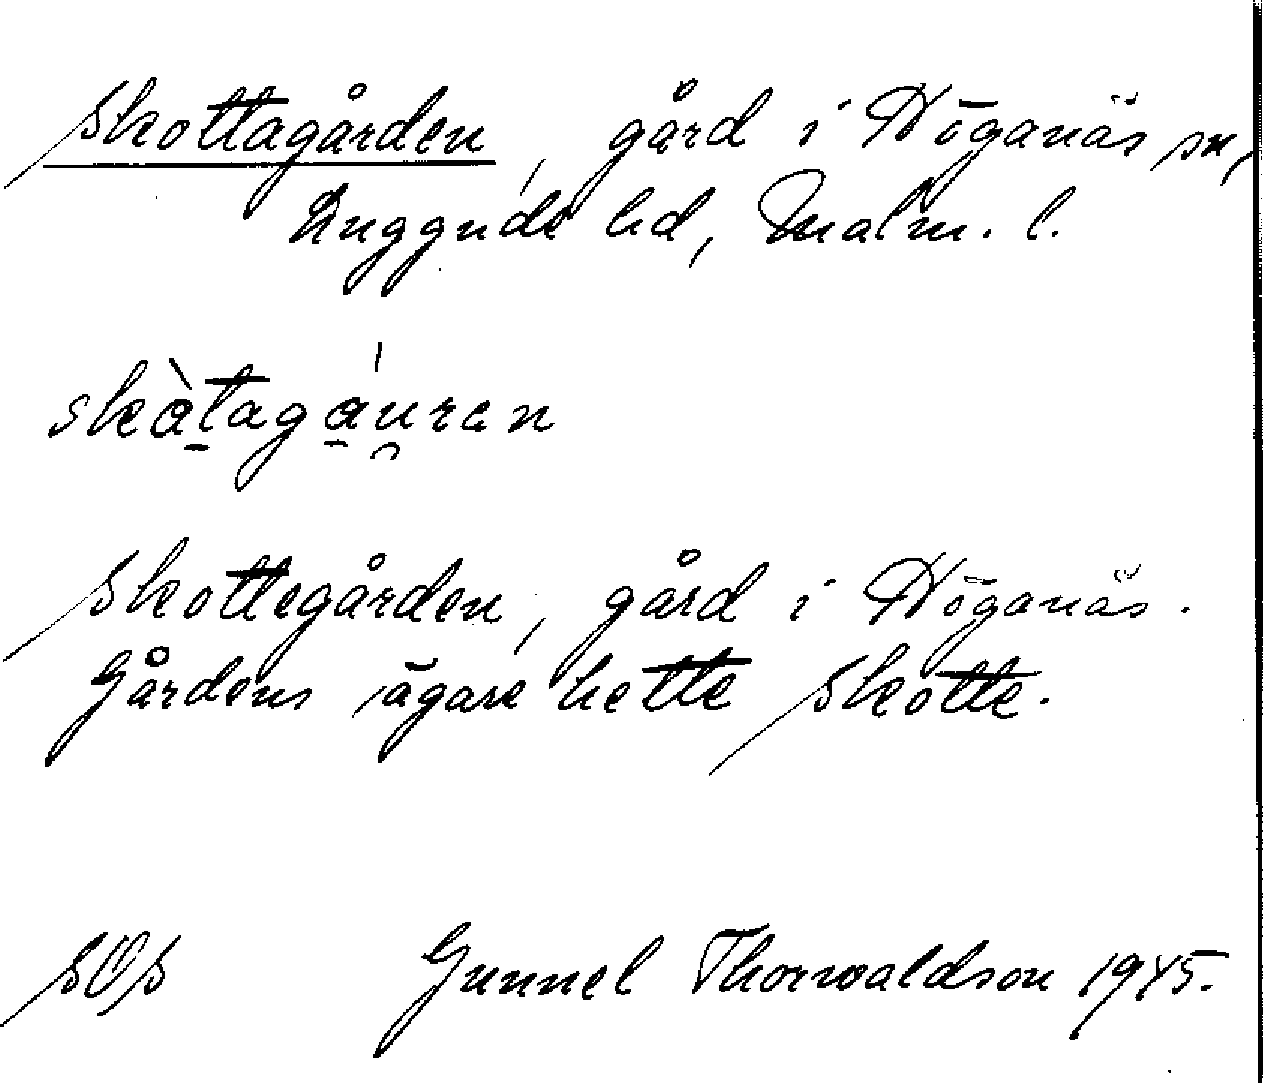 Skottagården, gård i Höganäs sn,
Luggude hd, Malm. l.
skàtagáu̯ran
Skottegården, gård i Höganäs.
Gårdens ägare hette Skotte.
SOS Gunnel Thorwaldson 1945.